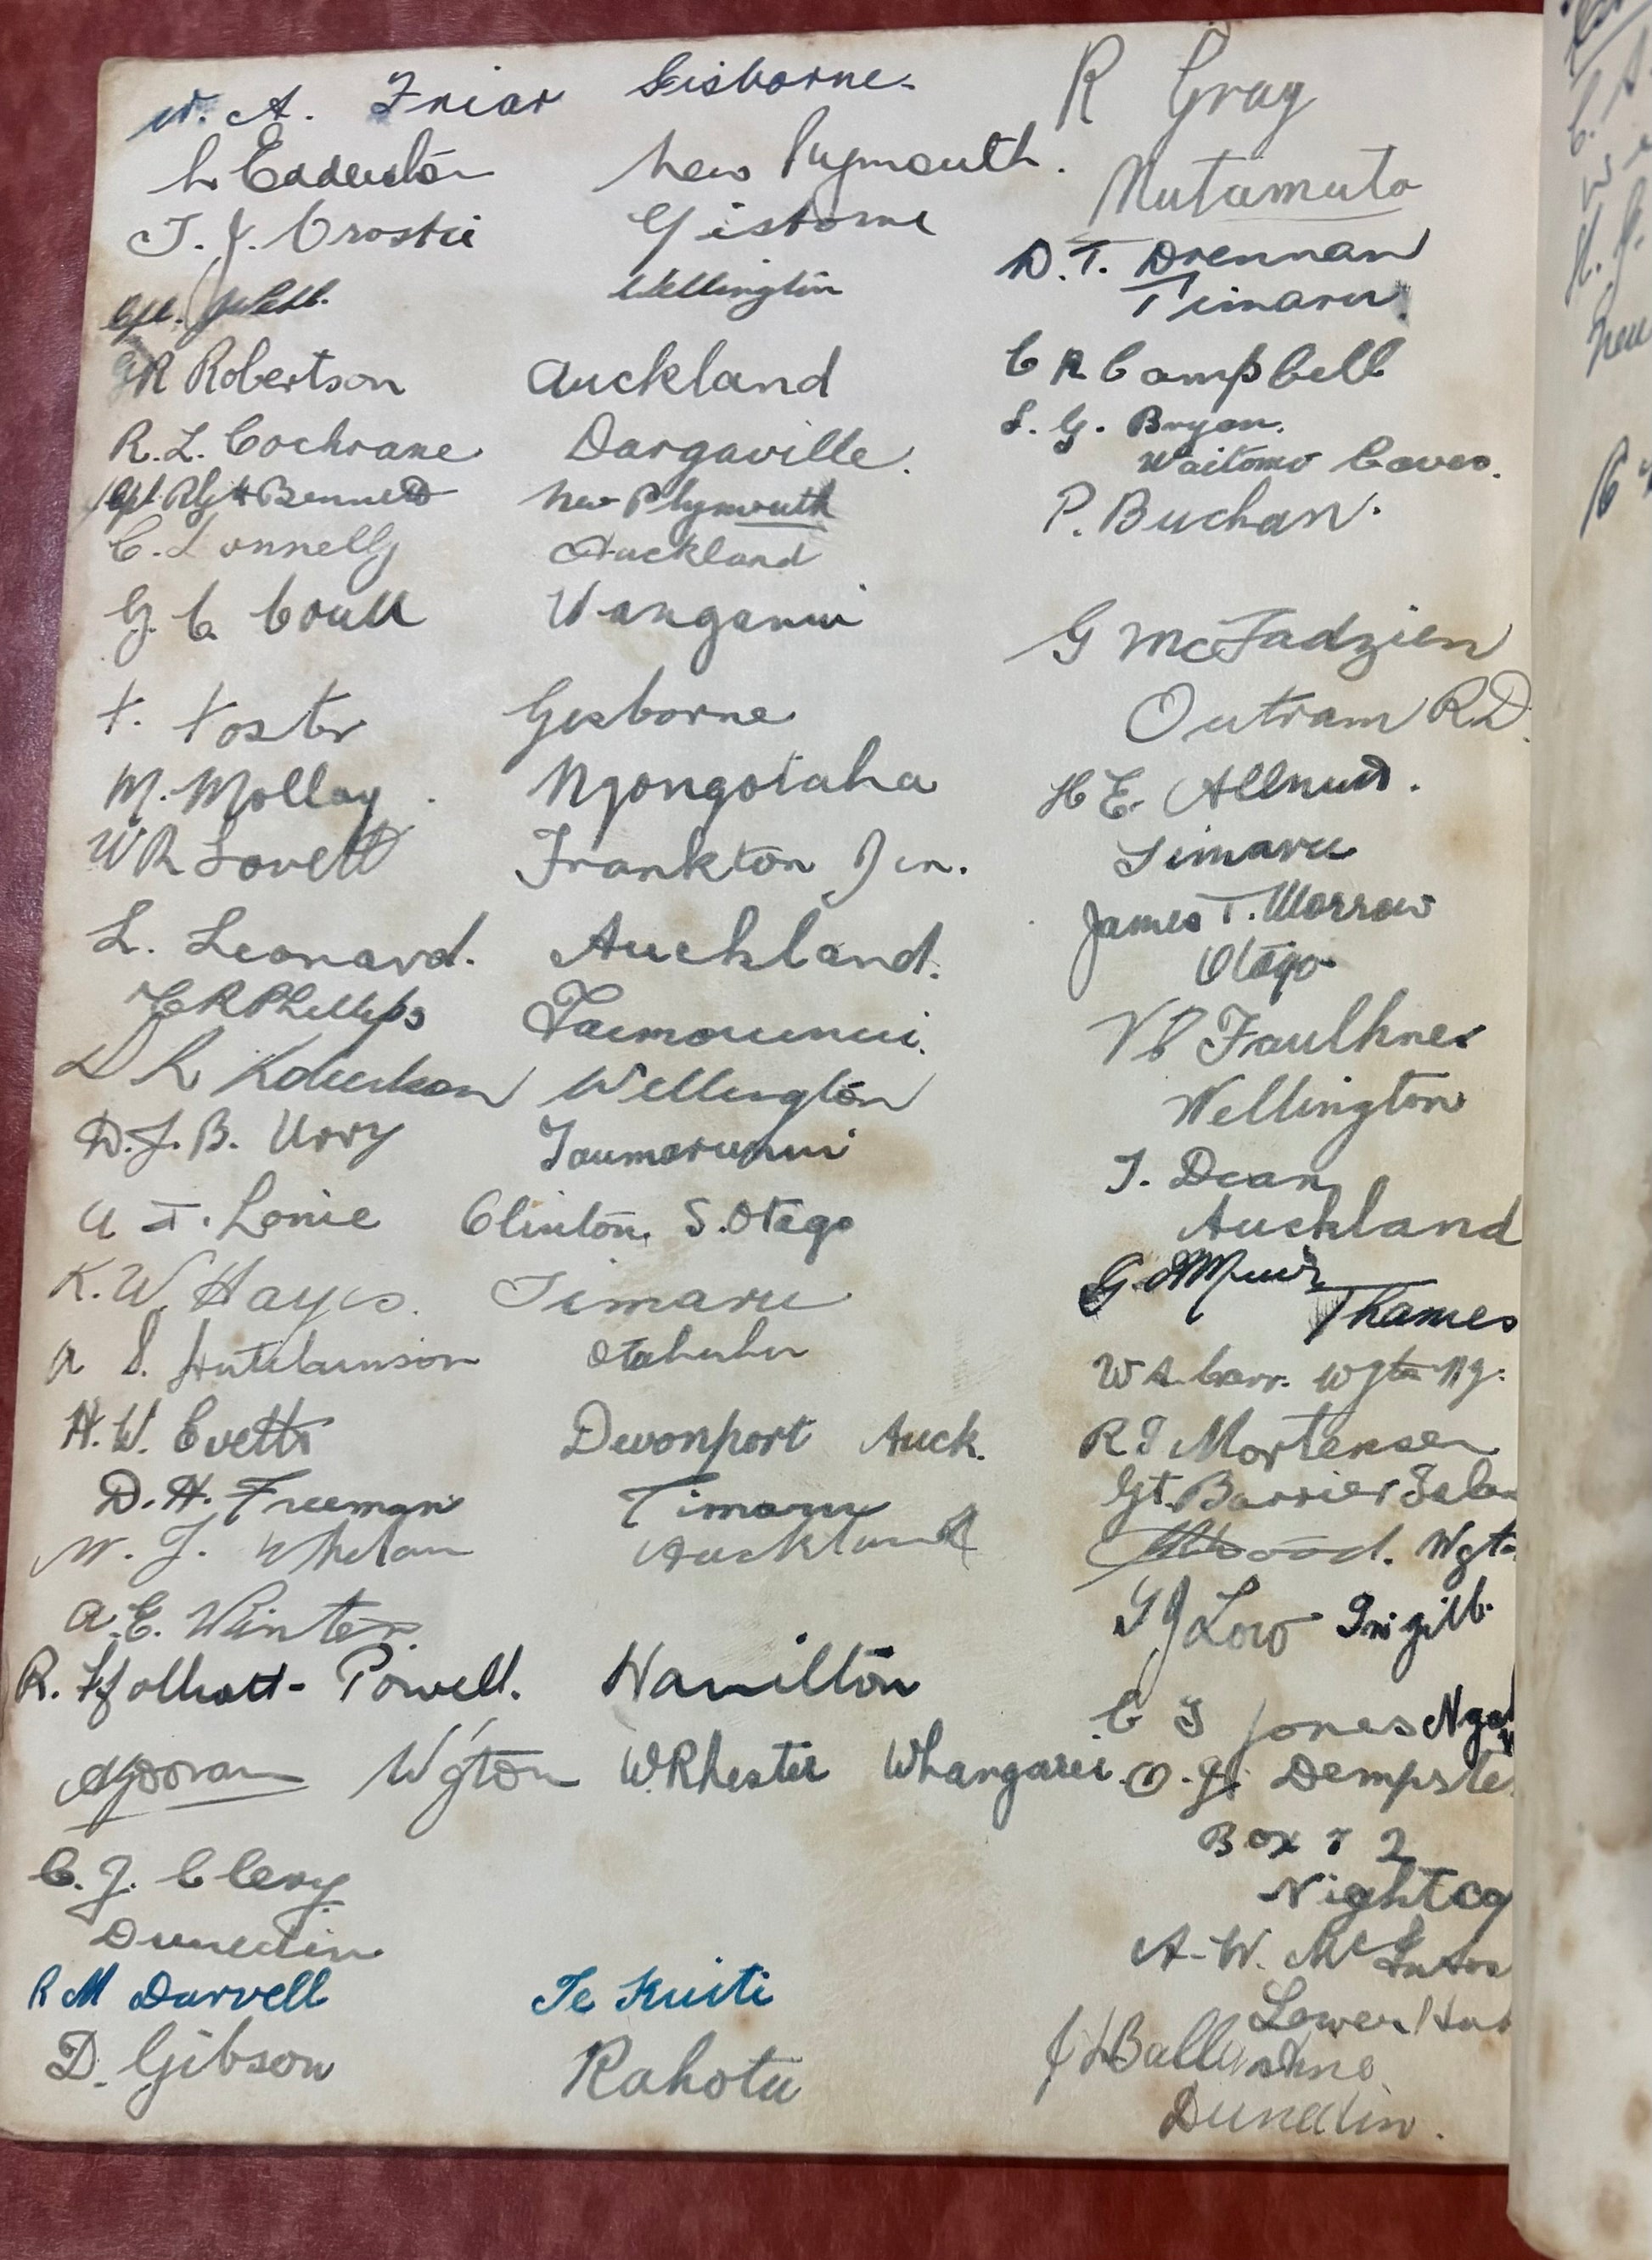 W. A. Friar Gisborne.
New Plymouth.
T. J. Crostie Gisborne
Wellington
R Robertson Auckland
R. L. Cochrane Dargaville.
Bennett New Plymouth
C. Connelly Auckland
G. C. Coull Wanganui
F. Foster Gisborne
M. Molloy. Ngongotaha
W R Lovett Frankton Jcn.
L. Leonard. Auckland.
R Phillips Taumarunui.
D R Robertson Wellington
D. J. B. Urry Taumarunui
A T. Lonie Clinton, S. Otago
K. W. Hayes. Timaru
A S. Hutchinson Otahuhu
H. W. Evetts Devonport Auck.
D. H. Freeman Timaru
W. J. Whelan Auckland
A. E. Winter.
R. - Powell. Hamilton
Doran Wgton W.R Whangarei.
C. J. Clery
Dunedin
R M Darvell Te Kuiti
D. Gibson Rahotu
R Gray
Matamata
D. T. Drennan
Timaru.
C R Campbell
S. G. Bryan.
Waitomo Caves.
P. Buchan.
G McFadzien
Outram R.D.
H E. Allnutt.
Timaru
James T. Morrow
Otago
V C Faulkner
Wellington
T. Dean
Auckland
G. Muir
Thames
W A. Carr. Wgtn N.Z.
R J Mortensen
Gt. Barrier
Wood. Wgtn
J Low
C S Jones
O. Dempste
Box 72
Nightca
A. W. Mc
Lower Hut
J L Ballantine
Dunedin.